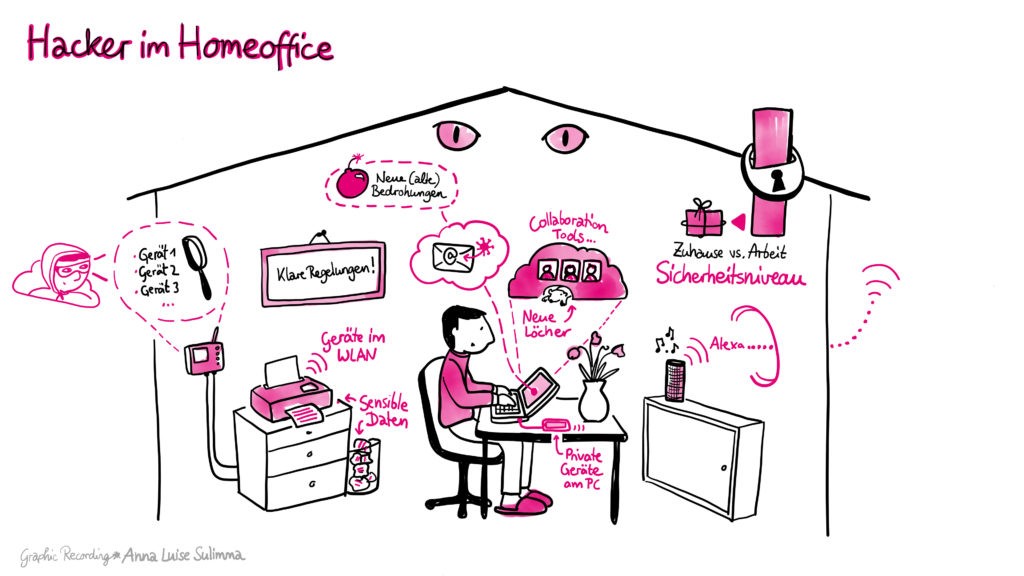 Hacker im Homeoffice
Neue (alte)
Bedrohungen
Collaboration
Tools...
Gerät 1
Gerät 2
Gerät 3
...
Klare Regelungen!
@
Zuhause vs. Arbeit
Sicherheitsniveau
Neue
Löcher
Geräte im
WLAN
Alexa.....
Sensible
Daten
Private
Geräte
am PC
Graphic Recording Anna Luise Sulimma